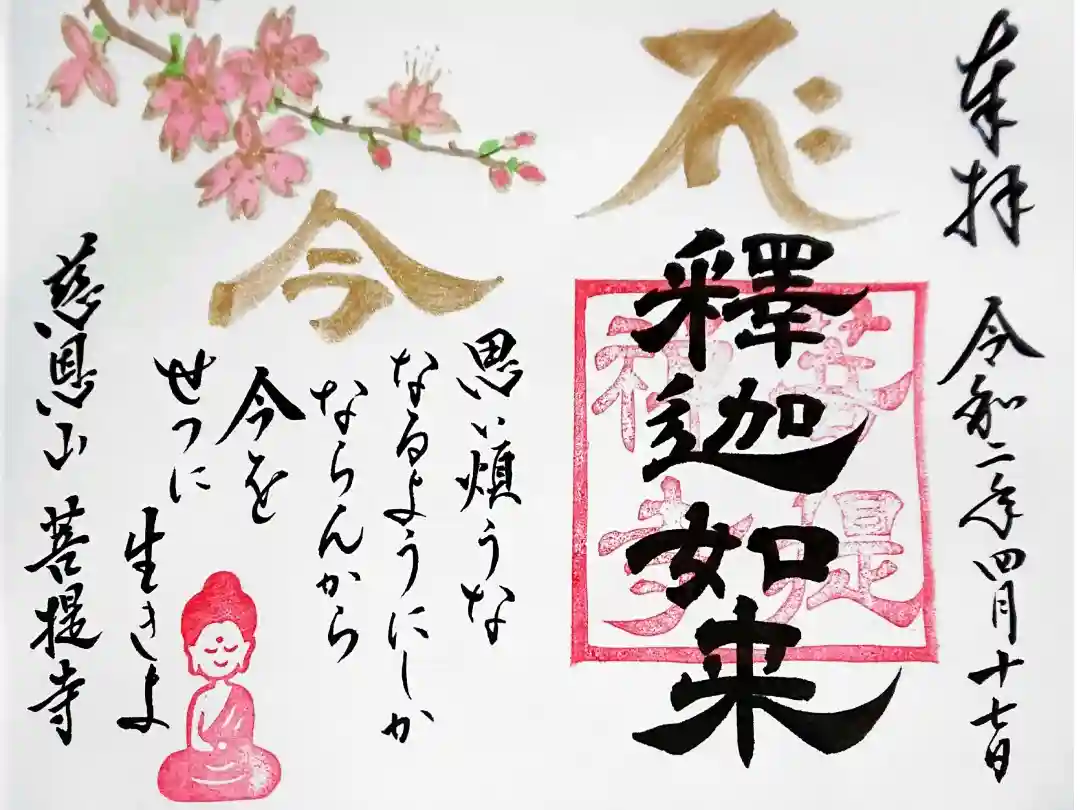 奉拝 令和二年四月十七日
釋迦如来
菩提
禅寺
今
思い煩うな
なるようにしか
ならんから
今を
せつに
生きよ
慈恩山 菩提寺